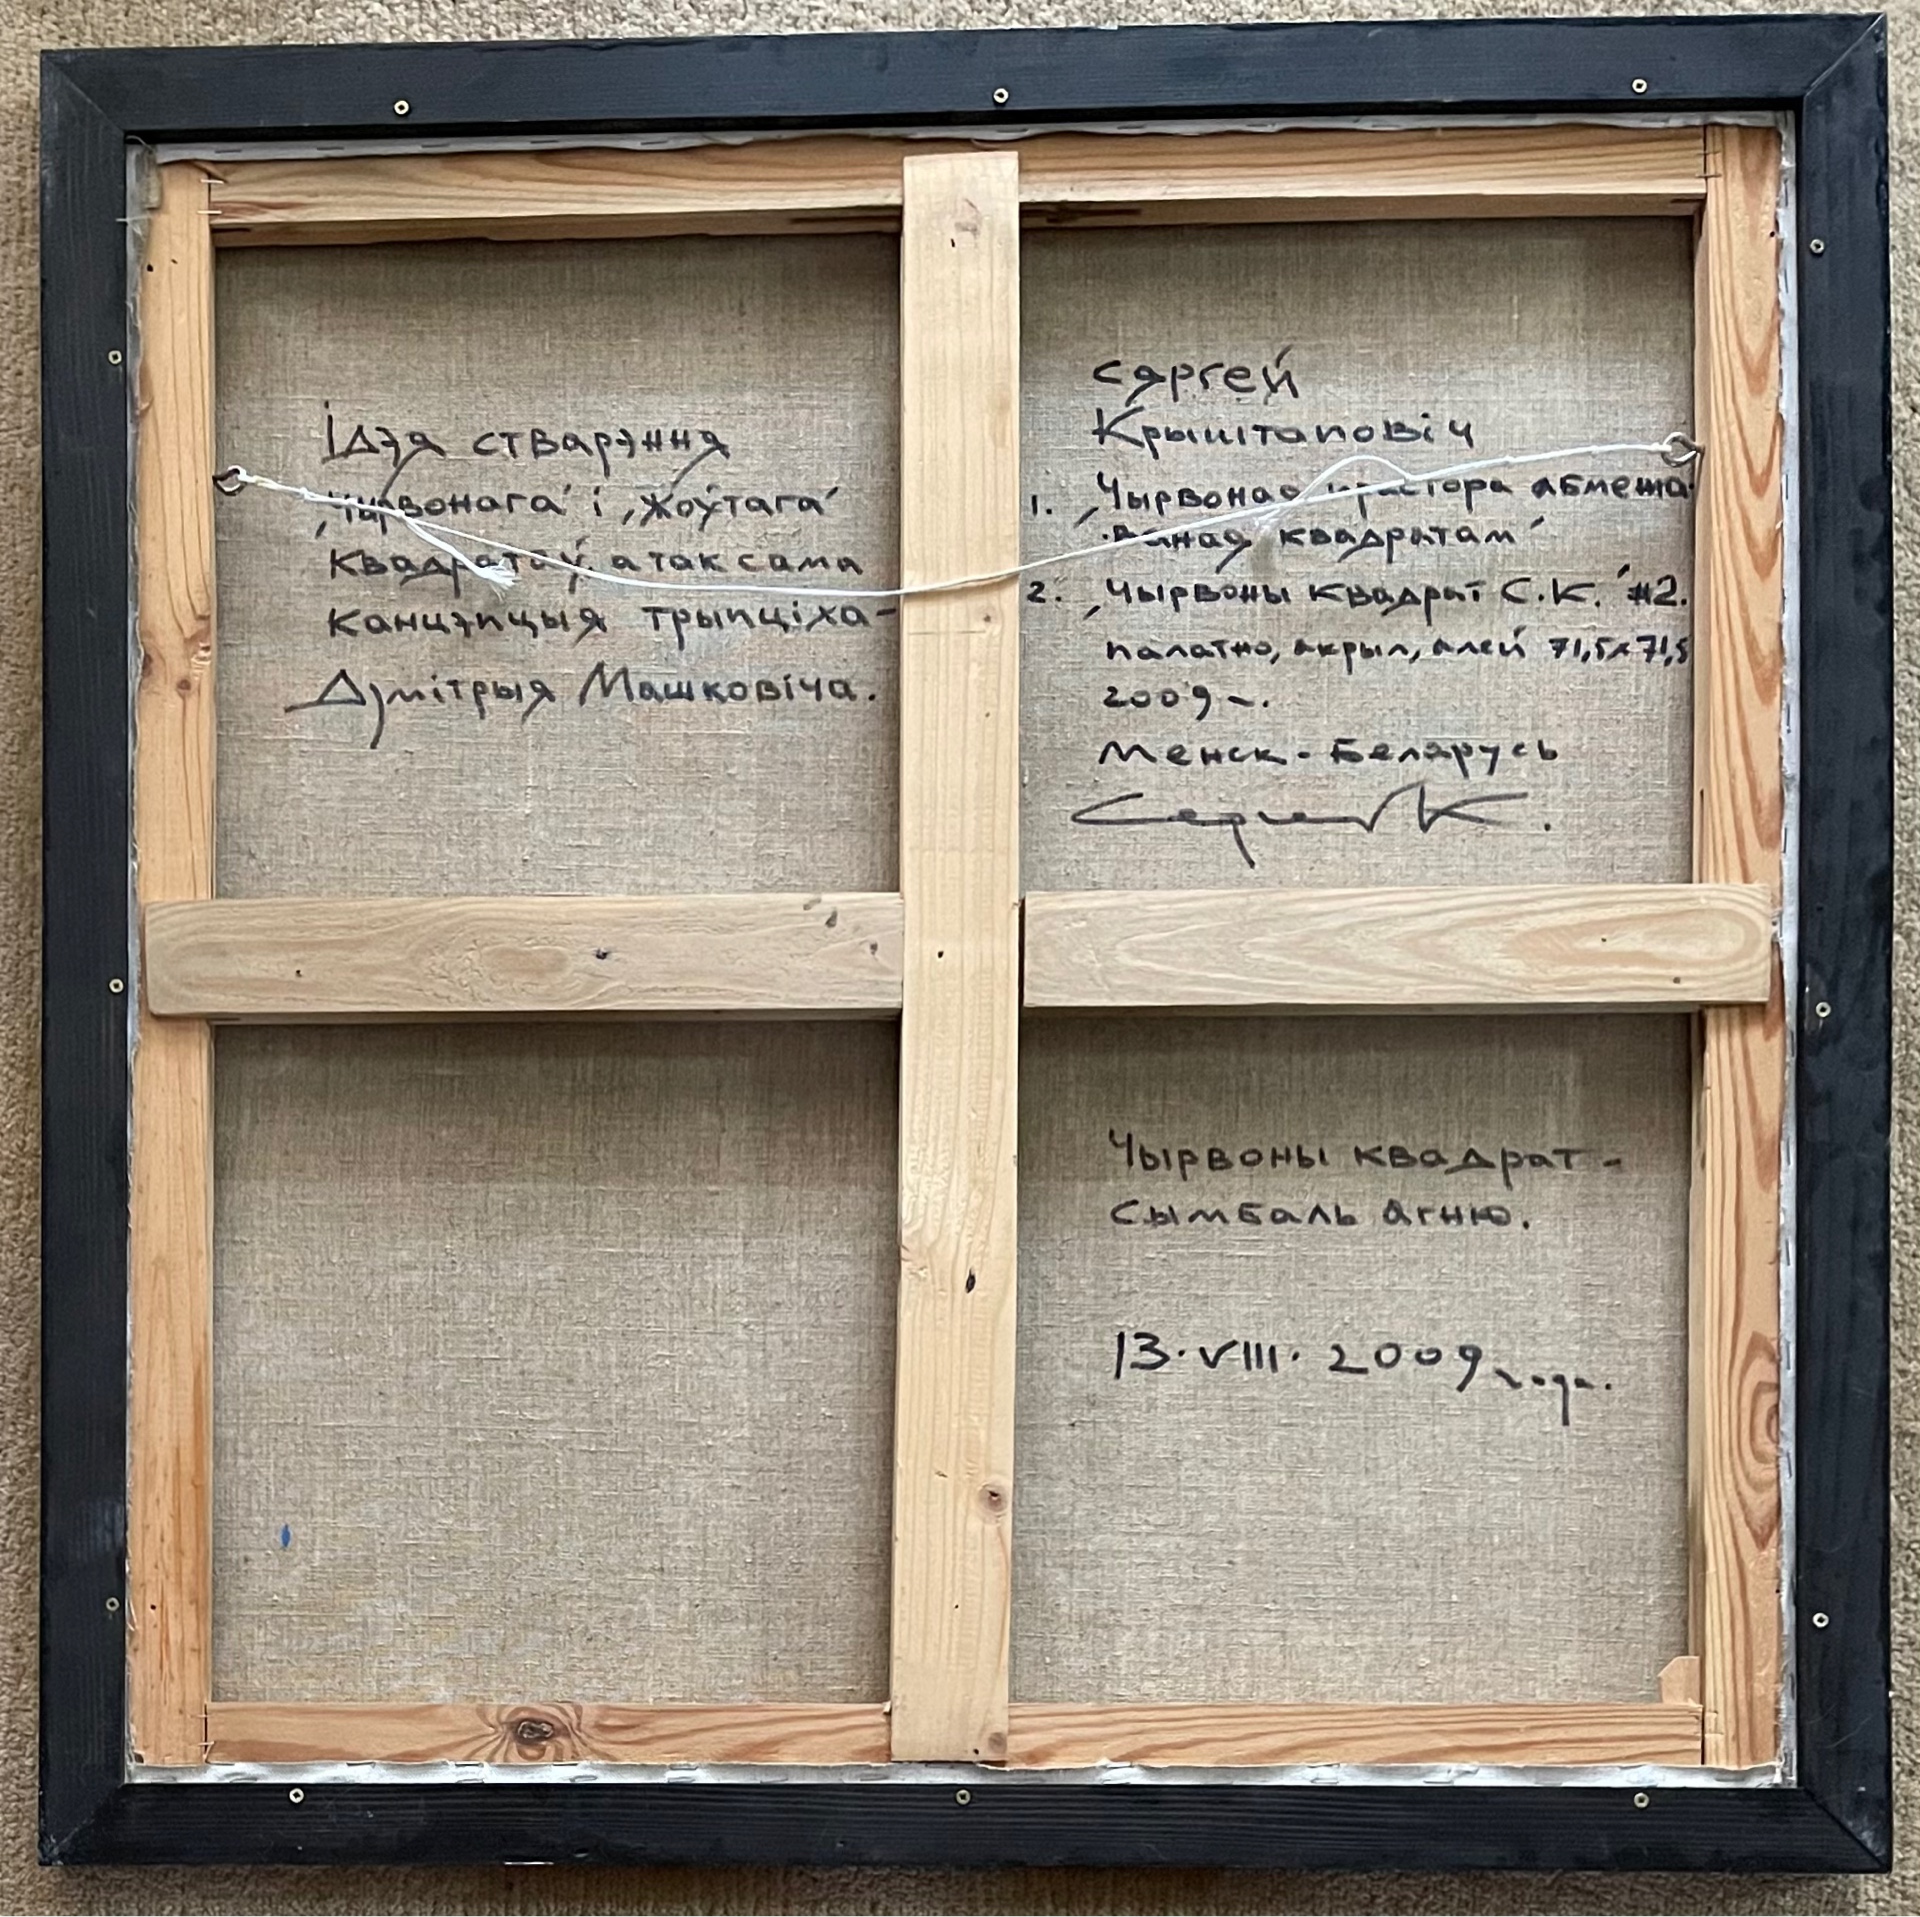 Ідэя стварэння
‚Чырвонага‘ і ‚Жоўтага‘
квадратаў, а таксама
канцэпцыя трыпціха -
Дзмітрыя Машковіча.
Сяргей
Крыштаповіч
1. ‚Чырвоная прастора абмежа-
-ваная квадратам‘
2. ‚Чырвоны квадрат С.К.‘ #2.
палатно, акрыл, алей 71,5x71,5
2009 г.
Менск - Беларусь
Сергей К.
Чырвоны квадрат -
сымбаль агню.
13. VIII. 2009 года.